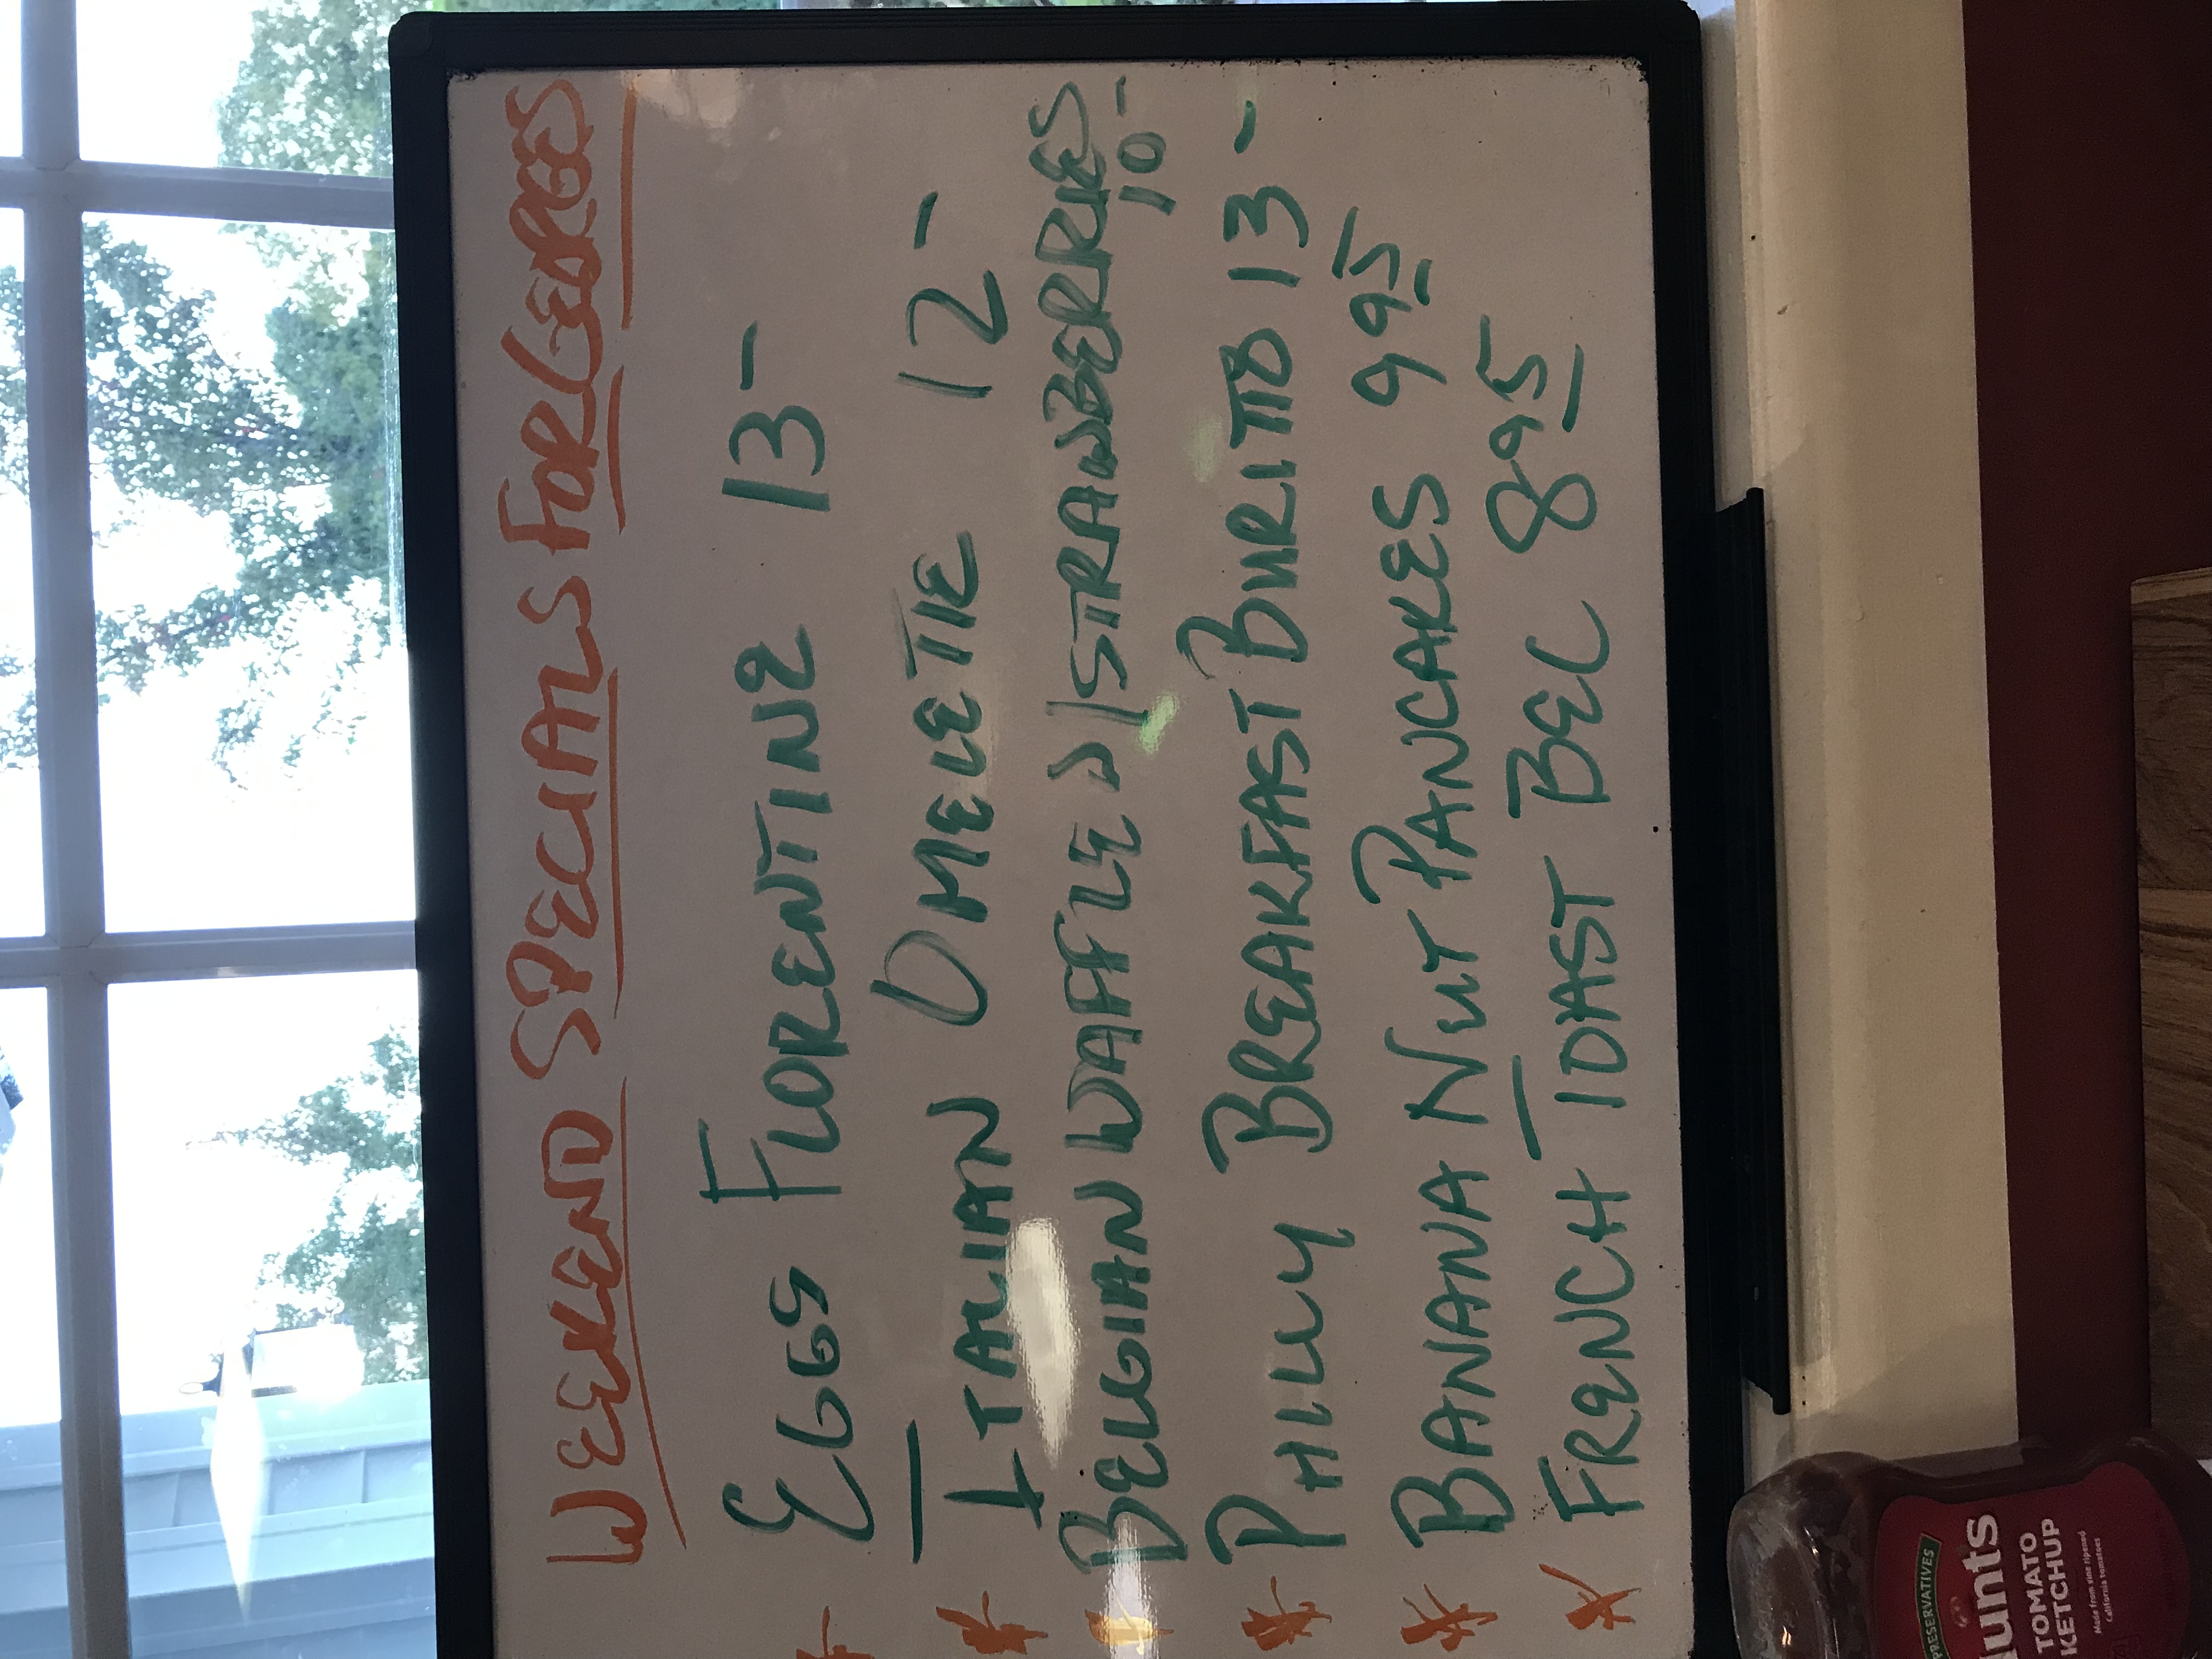 WEEKEND SPECIALS FOR GEORGES
EGGS FLORENTINE 13-
ITALIAN OMELETTE 12-
BELGIAN WAFFLE W/STRAWBERRIES
10-
PHILLY BREAKFAST BURITTO 13-
BANANA NUT PANCAKES 995
FRENCH TOAST BEC 895
PRESERVATIVES
unts
TOMATO
KETCHUP
Made from vine ripened
California tomatoes